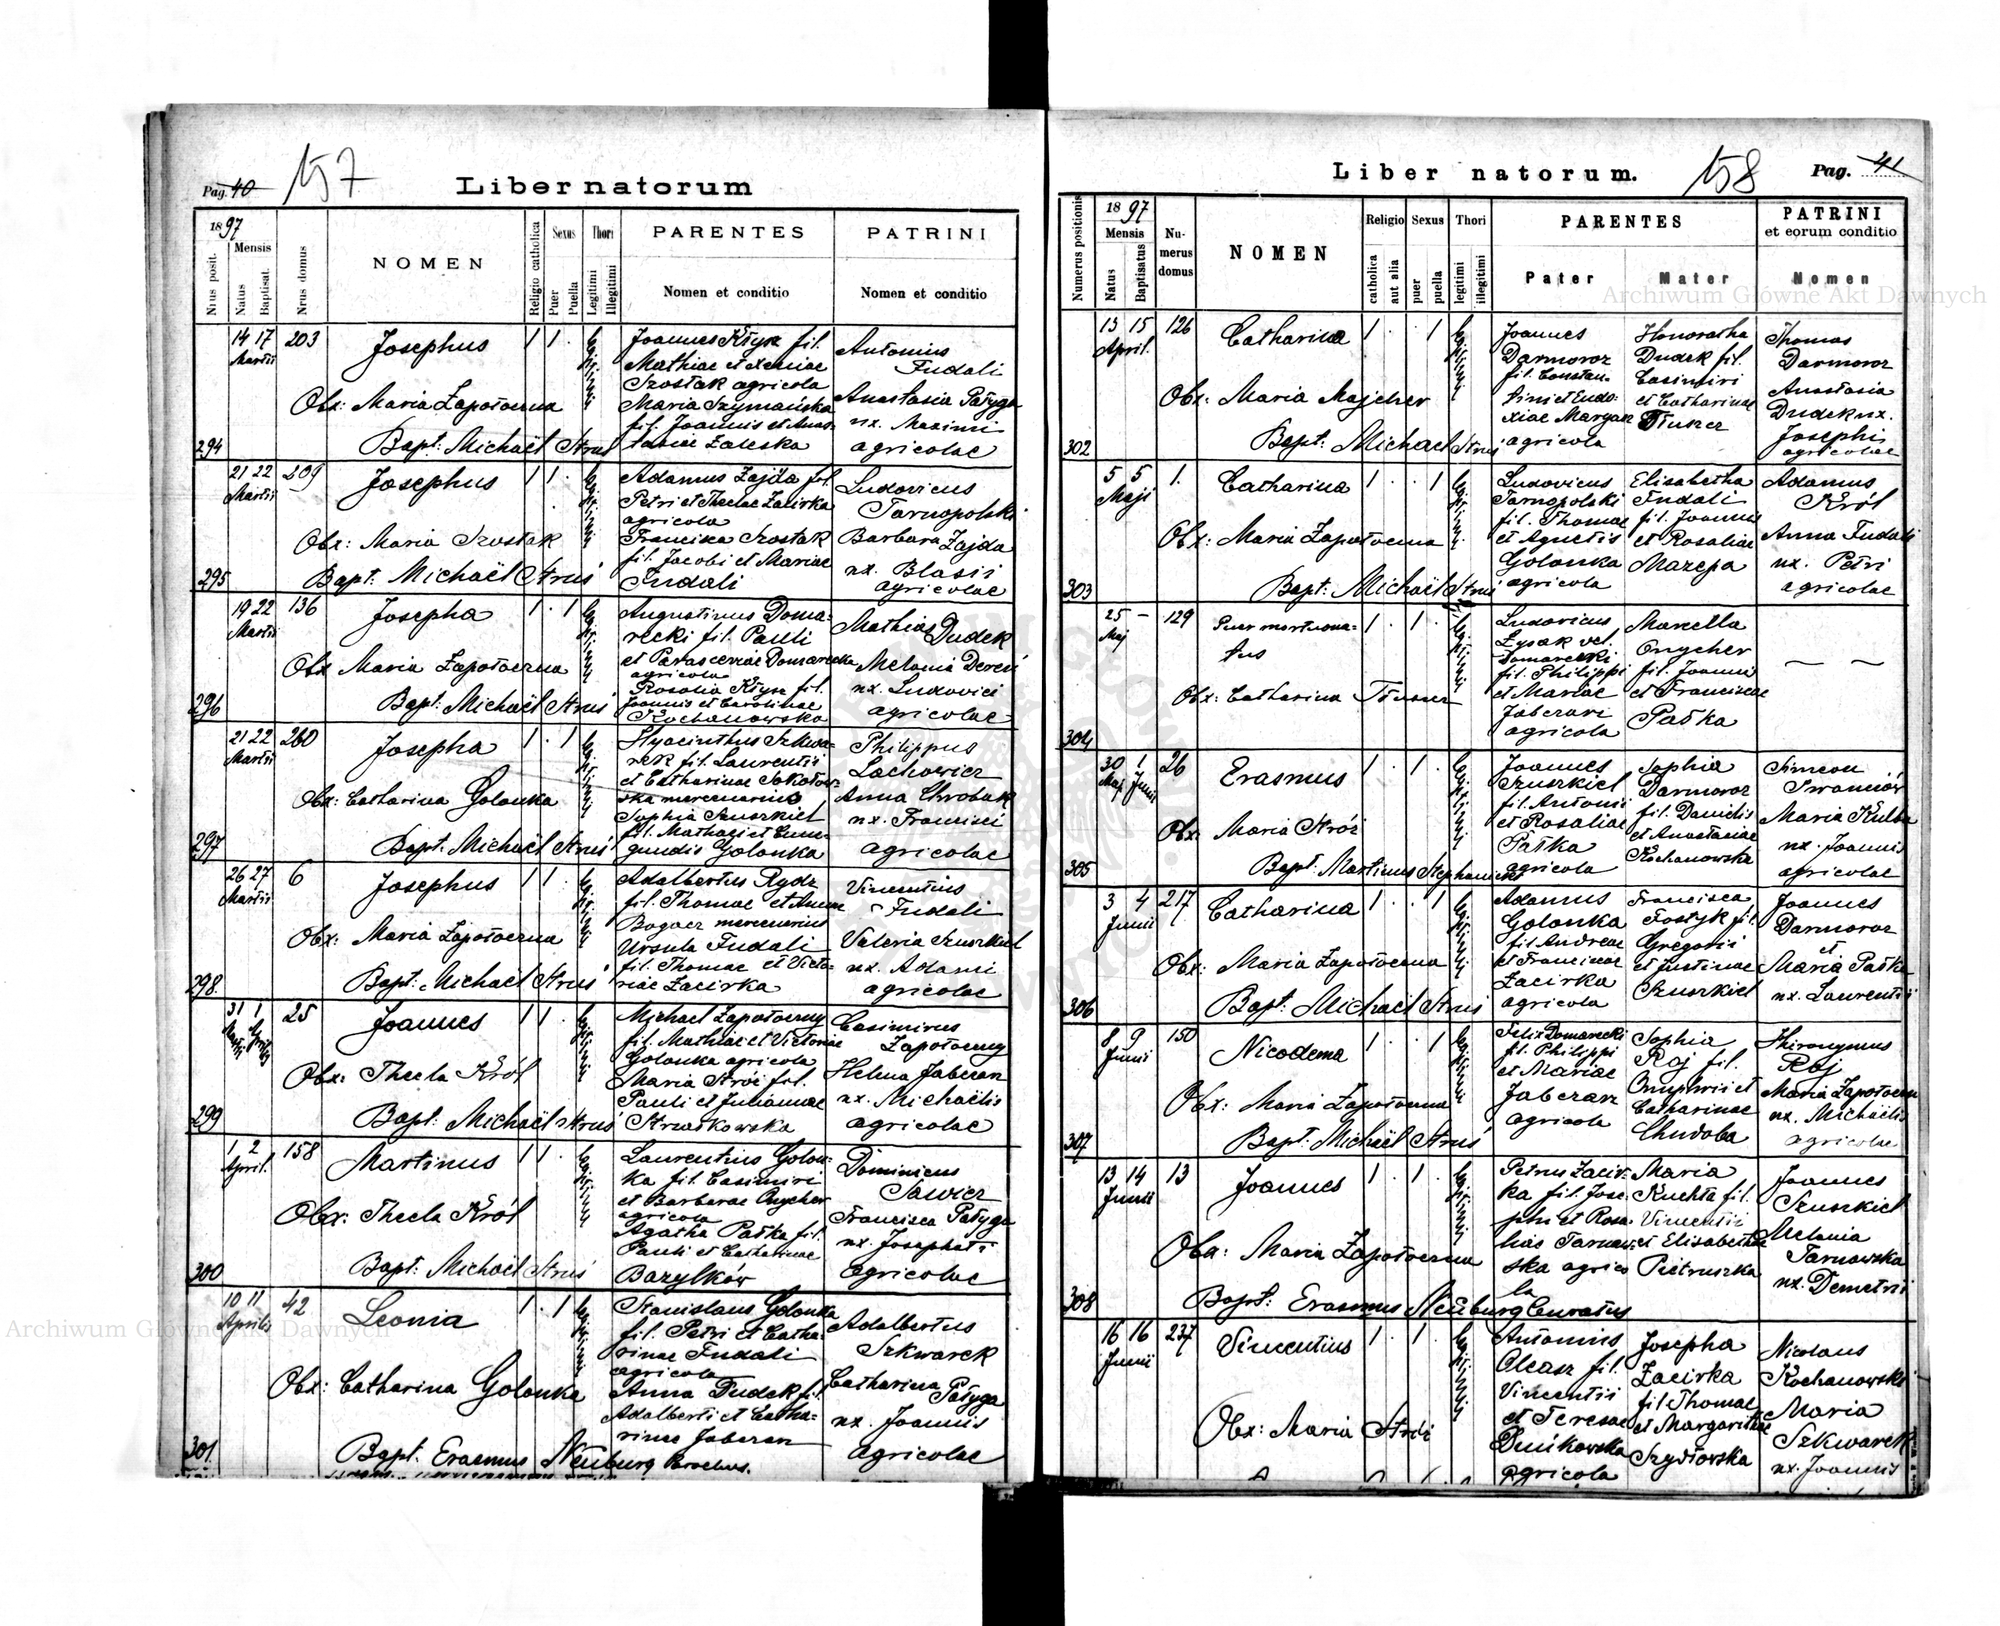 Pag. 40 157 Liber natorum
1897
Nrus posit.
Mensis
Natus
Baptisat.
Nrus domus
NOMEN
Religio catholica
Sexus
Puer
Puella
Thori
Legitimi
Illegitimi
PARENTES
Nomen et conditio
PATRINI
Nomen et conditio
294
14 17
Martii
203
Josephus
1 1 .
Obx: Maria Zapotoczna
Bapt: Michaël Struś
Joannes Kłysz fil.
Mathiae et Xeniae
Szostak agricola
Maria Szymańska
fil. Joannis et Anas-
tasiae Zaleska
Antonius
Fudali
Anastasia Pałyga
ux. Maximi
agricolae
295
21 22
Martii
209
Josephus
1 1 .
Obx: Maria Szostak
Bapt: Michaël Struś
Adamus Zajda fil.
Petri et Theclae Zacirka
agricola
Francisca Szostak
fil. Jacobi et Mariae
Fudali
Ludovicus
Tarnopolski
Barbara Zajda
ux. Blasii
agricolae
296
19 22
Martii
136
Josepha
1 . 1
Obx Maria Zapotoczna
Bapt: Michaël Struś
Augustinus Doma-
recki fil. Pauli
et Parasceviae Domarecka
agricola
Rosalia Kłysz fil.
Joannis et Carolinae
Kochanowska
Mathias Dudek
Melania Dereń
ux. Ludovici
agricolae
297
21 22
Martii
260
Josepha
1 . 1
Obx: Catharina Golonka
Bapt: Michaël Struś
Hyacinthus Szkwa-
rek fil. Laurentii
et Catharinae Sokołow-
ska mercenarius
Sophia Szuszkiel
fil. Mathaei et Cune-
gundis Golonka
Philippus
Lachowicz
Anna Chrobak
ux. Francisci
agricolae
298.
26 27
Martii
6
Josephus
1 1 .
Obx: Maria Zapotoczna
Bapt: Michaël Struś
Adalbertus Rydz
fil. Thomae et Annae
Bogacz mercenarius
Ursula Fudali
fil. Thomae et Victo-
riae Zacirka
Vincentius
Fudali
Valeria Szuszkiel
ux. Adami
agricolae
299
31 1
Martii Aprilis
25
Joannes
1 1 .
Obx: Thecla Król
Bapt: Michaël Struś
Michael Zapotoczny
fil. Mathiae et Victoriae
Golonka agricola
Maria Stróż fil.
Pauli et Julianae
Strzałkowska
Casimirus
Zapotoczny
Helena Jaberan
ux. Michaëlis
agricolae
300
1 2
April.
158
Martinus
1 1 .
Obx: Thecla Król
Bapt: Michaël Struś
Laurentius Golon-
ka fil. Casimiri
et Barbarae Onycher
agricola
Agatha Pałka fil.
Pauli et Catharinae
Bazylków
Dominicus
Sawicz
Francisca Pałyga
ux. Josephati
agricolae
301.
10 11
Aprilis
42
Leonia
1 . 1
Obx: Catharina Golonka
Bapt: Erasmus Neuburg Parochus.
Stanislaus Golonka
fil. Petri et Catha-
rinae Fudali
agricola
Anna Dudek fil.
Adalberti et Catha-
rinae Jaberan
Adalbertus
Szkwarek
Catharina Pałyga
ux. Joannis
agricolae
Liber natorum. 158 Pag. 41
Numerus positionis
1897
Mensis
Natus
Baptisatus
Nu-
merus
domus
NOMEN
Religio
catholica
aut alia
Sexus
puer
puella
Thori
legitimi
illegitimi
PARENTES
Pater
Mater
PATRINI
et eorum conditio
Nomen
302
13 15
April.
126
Catharina
1 . 1
Obx: Maria Majcher
Bapt: Michael Struś
Joannes
Darmoroz
fil. Constan-
tini et Eudo-
xiae Margasz
agricola
Honoratha
Dudek fil.
Casimiri
et Catharinae
Tłuszcz
Thomas
Darmoroz
Anastasia
Dudek ux.
Josephi
agricolae
303
5 5
Maji
1.
Catharina
1 . 1
Obx: Maria Zapotoczna
Bapt: Michaël Struś
Ludovicus
Tarnopolski
fil. Thomae
et Agnetis
Golonka
agricola
Elisabetha
Fudali
fil. Joannis
et Rosaliae
Mazepa
Adamus
Król
Anna Fudali
ux. Petri
agricolae
304
25 –
Maj
129
Puer mortuona-
tus
1 . 1 .
Obx: Catharina Tłuszcz
Ludovicus
Łysak vel
Domarecki
fil. Philippi
et Mariae
Jaberan
agricola
Marcella
Onycher
fil. Joannis
et Franciscae
Pałka
305
30 1
Maji Junii
26
Erasmus
1 . 1 .
Obx: Maria Stróż
Bapt: Martinus Stephanicki
Joannes
Szuszkiel
fil. Antonii
et Rosaliae
Pałka
agricola
Sophia
Darmoroz
fil. Danielis
et Anastasiae
Kochanowska
Simeon
Iwanców
Maria Kulba
ux. Joannis
agricolae
306
3 4
Junii
217
Catharina
1 . 1
Obx: Maria Zapotoczna
Bapt: Michaël Struś
Adamus
Golonka
fil. Andreae
et Franciscae
Zacirka
agricola
Francisca
Fostyk fil.
Gregorii
et Justinae
Szuszkiel
Joannes
Darmoroz
et
Maria Pałka
ux. Laurentii
307
8 9
Junii
150
Nicodema
1 . 1
Obx: Maria Zapotoczna
Bapt: Michaël Struś
Felix Domarecki
fil. Philippi
et Mariae
Jaberan
agricola
Sophia
Roj fil.
Onuphrii et
Catharinae
Chudoba
Hieronymus
Roj
Maria Zapotoczna
ux. Michaëlis
agricolae
308
13 14
Junii
13
Joannes
1 . 1 .
Obx: Maria Zapotoczna
Bapt: Erasmus Neuburg Curatus
Petrus Zacir-
ka fil. Jose-
phi et Rosa-
liae Tarnaw-
ska agrico
la
Maria
Kuchta fil.
Vincentii
et Elisabethae
Pietruszka
Joannes
Szuszkiel
Melania
Tarnowska
ux. Demetrii
16 16
Junii
237
Vincentius
1 . 1 .
Obx: Maria Stróż
Antonius
Olearz fil.
Vincentii
et Teresae
Dunikowska
agricola
Josepha
Zacirka
fil. Thomae
et Margarithae
Szydłowska
Nicolaus
Kochanowski
Maria
Szkwarek
ux. Joannis
Archiwum Główne Akt Dawnych
Archiwum Główne Akt Dawnych